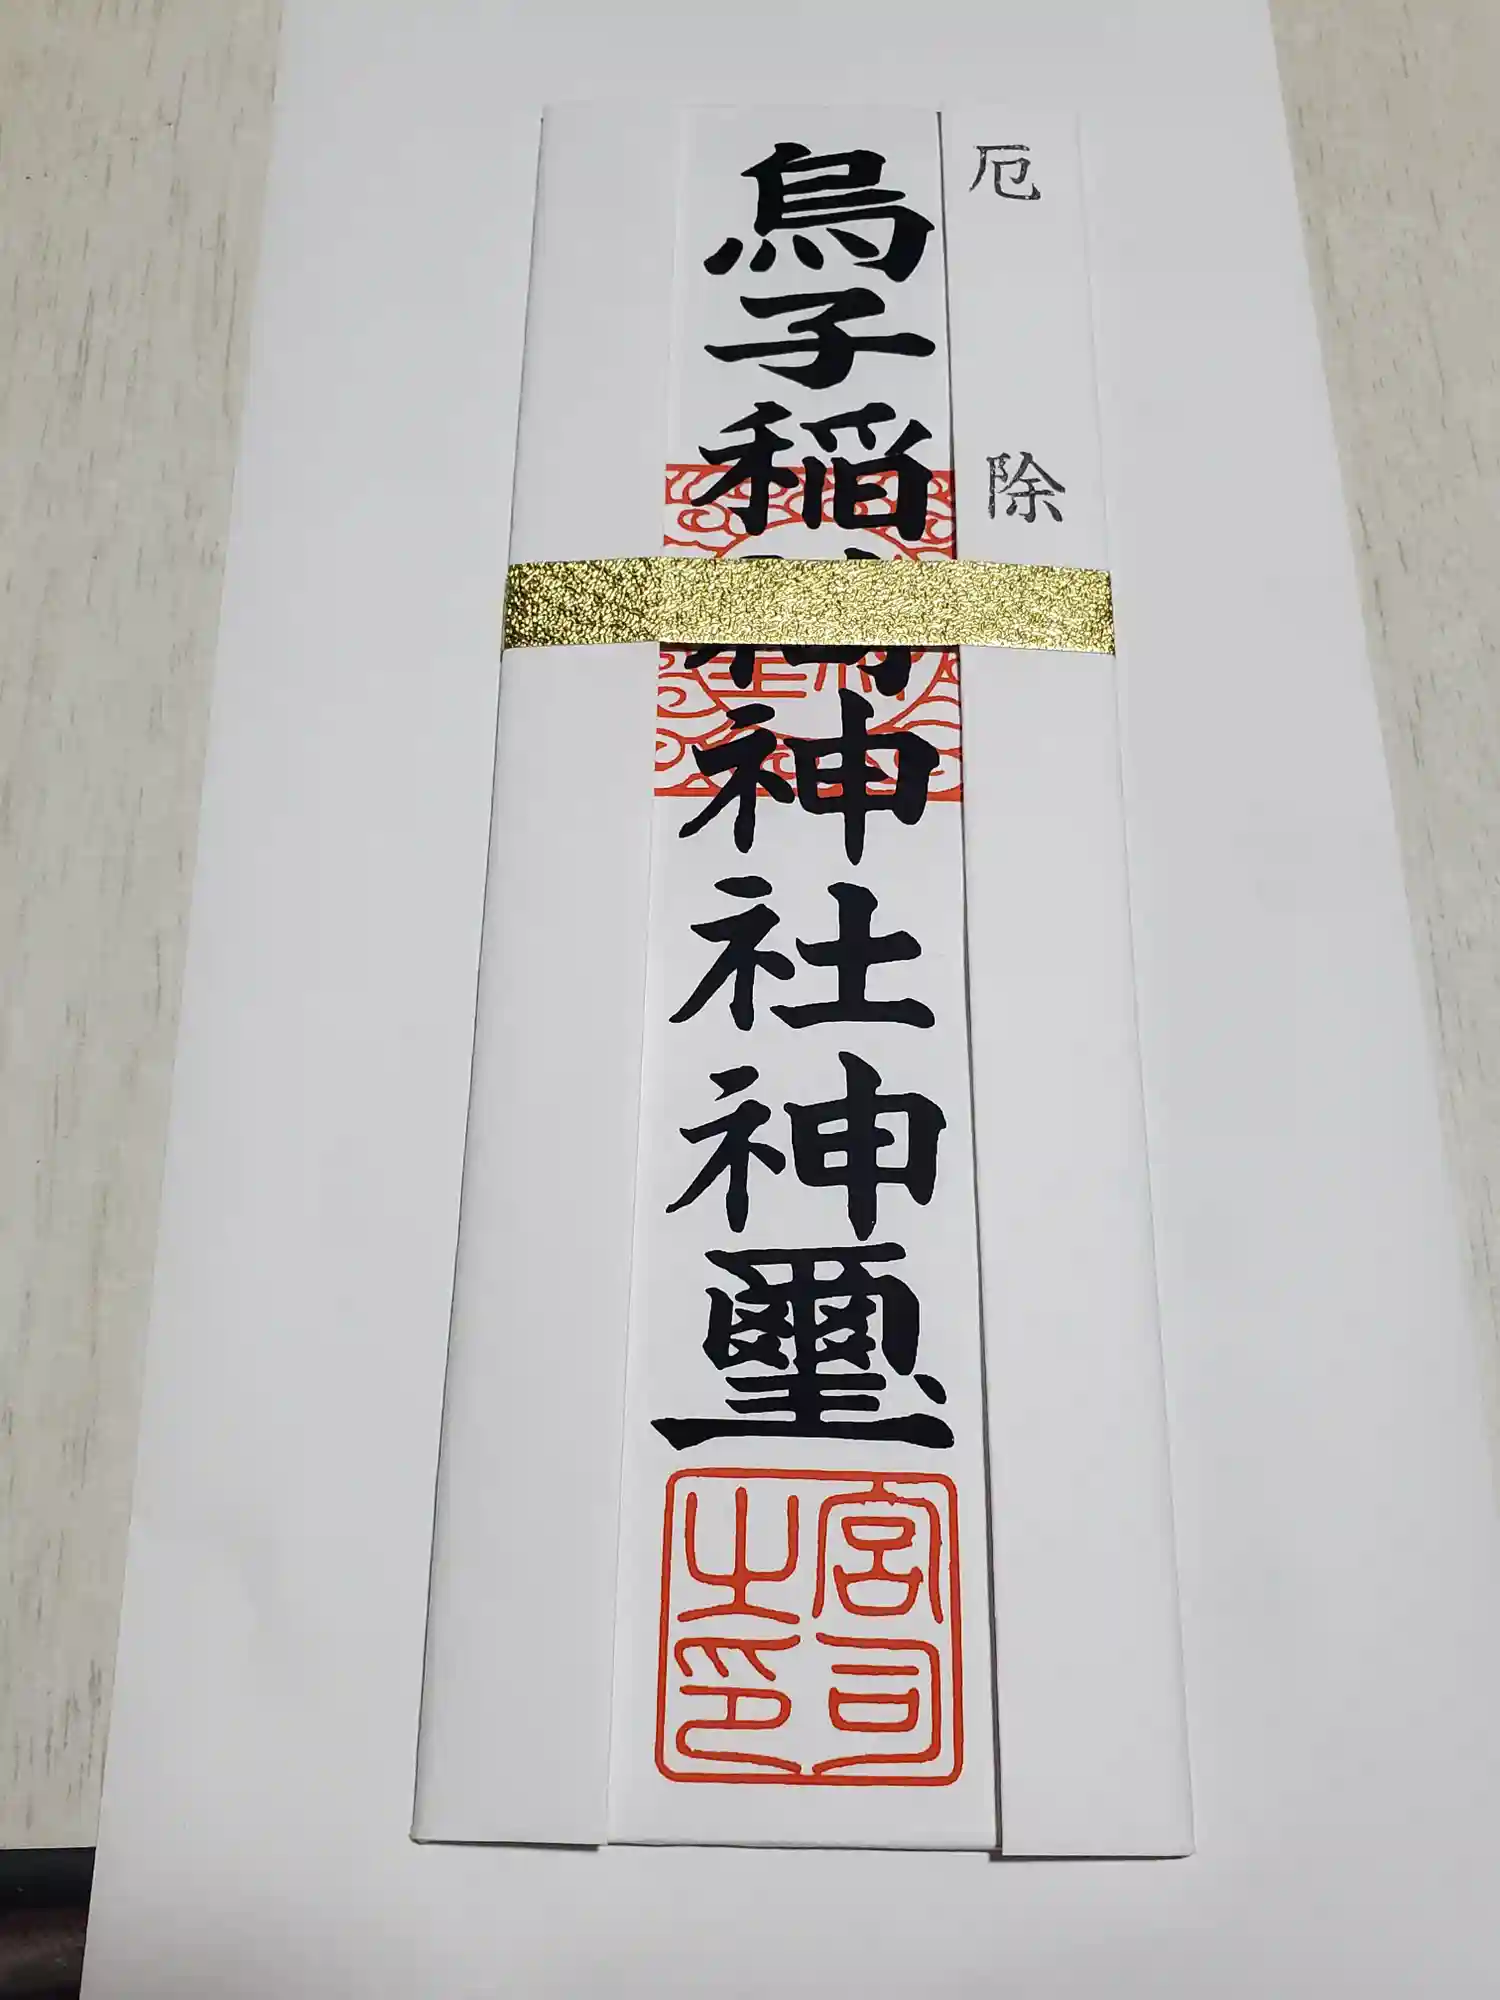 厄除
烏子稲神社神璽
宮司
之印